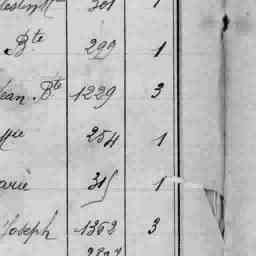 301 1
Bte 299 1
Jean Bte 1229 3
254 1
arie 315 1
Joseph 1362 3